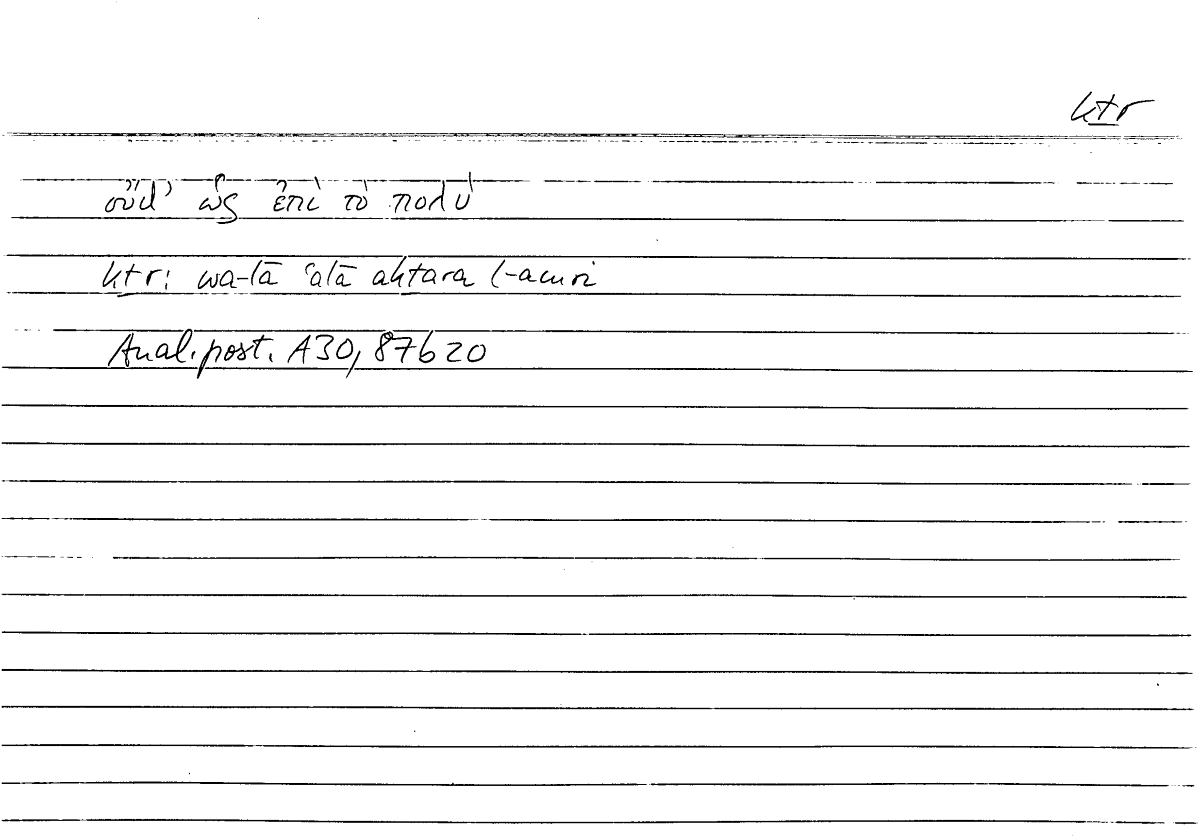 kṯr
οὔθ' ὡς ἐπὶ τὸ πολὺ
kṯr: wa-lā ʿalā akṯara l-amri
Anal. post. A30, 87b20